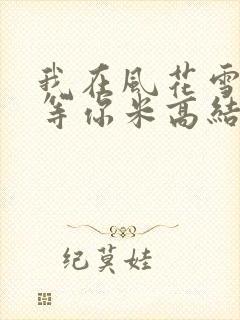 我在風花雪
等你米高結
纪莫娃